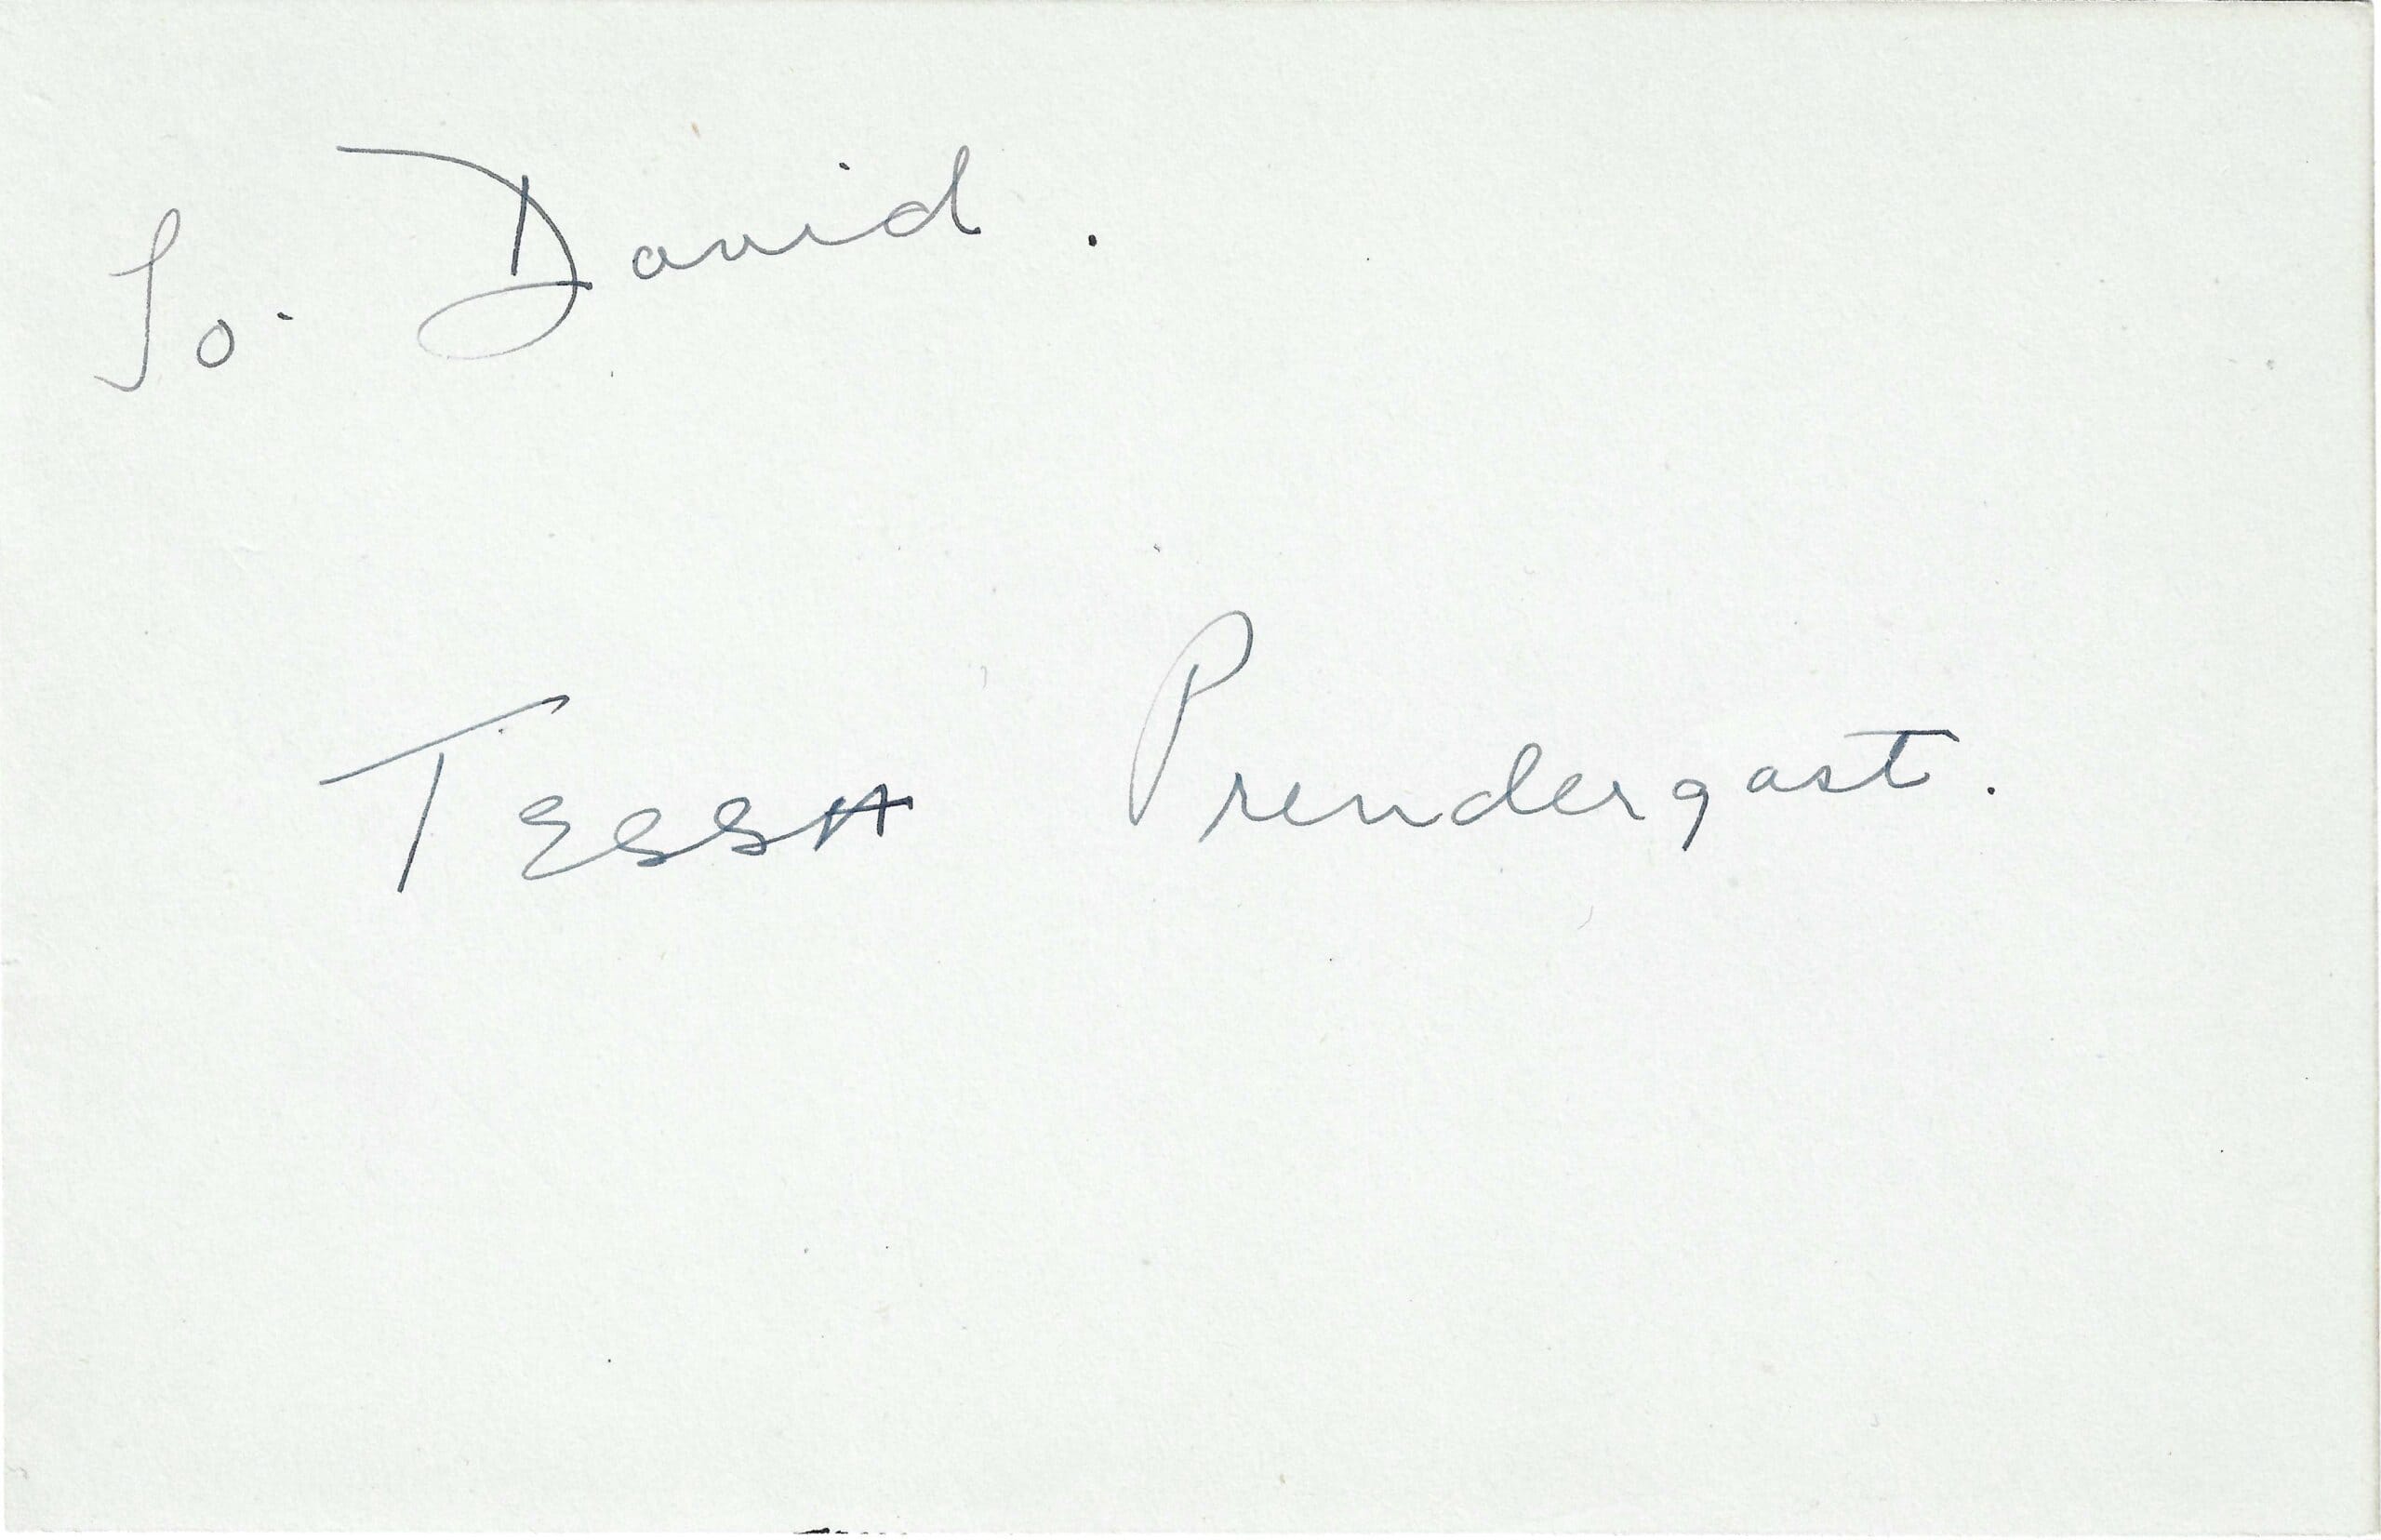 To David.
TESSA Prendergast.